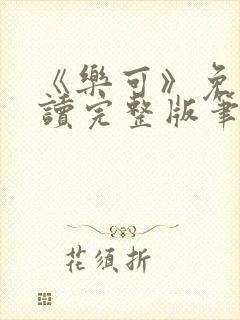 《樂可》免
讀完整版筆
花須折